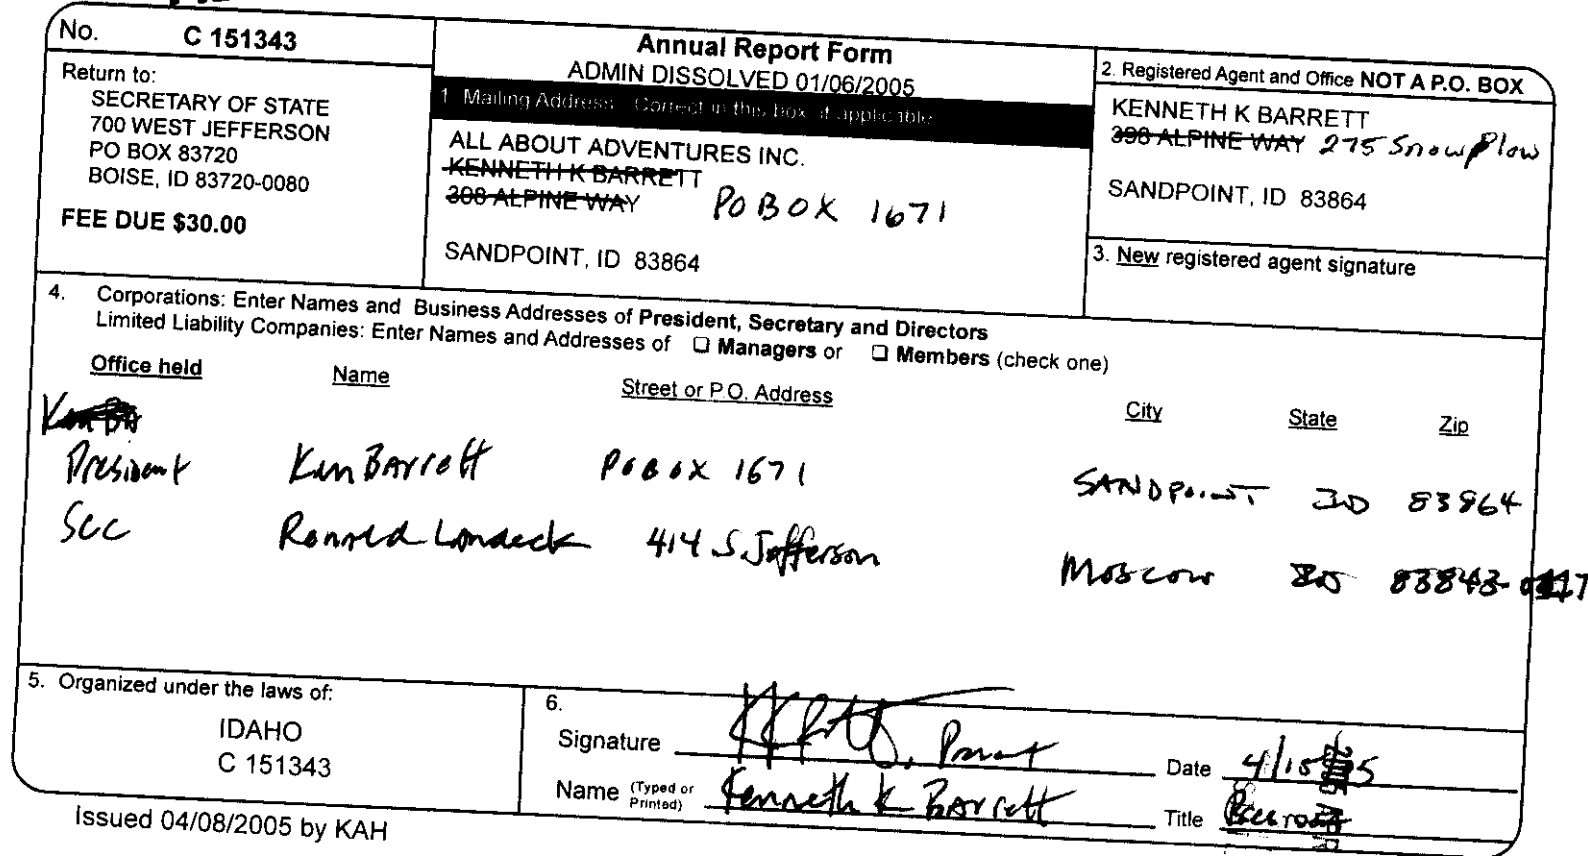 No. C 151343
Return to:
SECRETARY OF STATE
700 WEST JEFFERSON
PO BOX 83720
BOISE, ID 83720-0080
FEE DUE $30.00
Annual Report Form
ADMIN DISSOLVED 01/06/2005
1. Mailing Address: Correct in this box if applicable
ALL ABOUT ADVENTURES INC.
KENNETH K BARRETT
308 ALPINE WAY PO BOX 1671
SANDPOINT, ID 83864
2. Registered Agent and Office NOT A P.O. BOX
KENNETH K BARRETT
ALPINE WAY 275 Snow Plow
SANDPOINT, ID 83864
3. New registered agent signature
4. Corporations: Enter Names and Business Addresses of President, Secretary and Directors
Limited Liability Companies: Enter Names and Addresses of ❑ Managers or ❑ Members (check one)
Office held Name Street or P.O. Address City State Zip
President Ken Barrett PO BOX 1671 SANDPOINT ID 83864
Sec Ronald Landeck 414 S. Jefferson Moscow ID 83843-
5. Organized under the laws of:
IDAHO
C 151343
6.
Signature
Date 4/15
Name (Typed or Printed) Kenneth K Barrett
Title
Issued 04/08/2005 by KAH